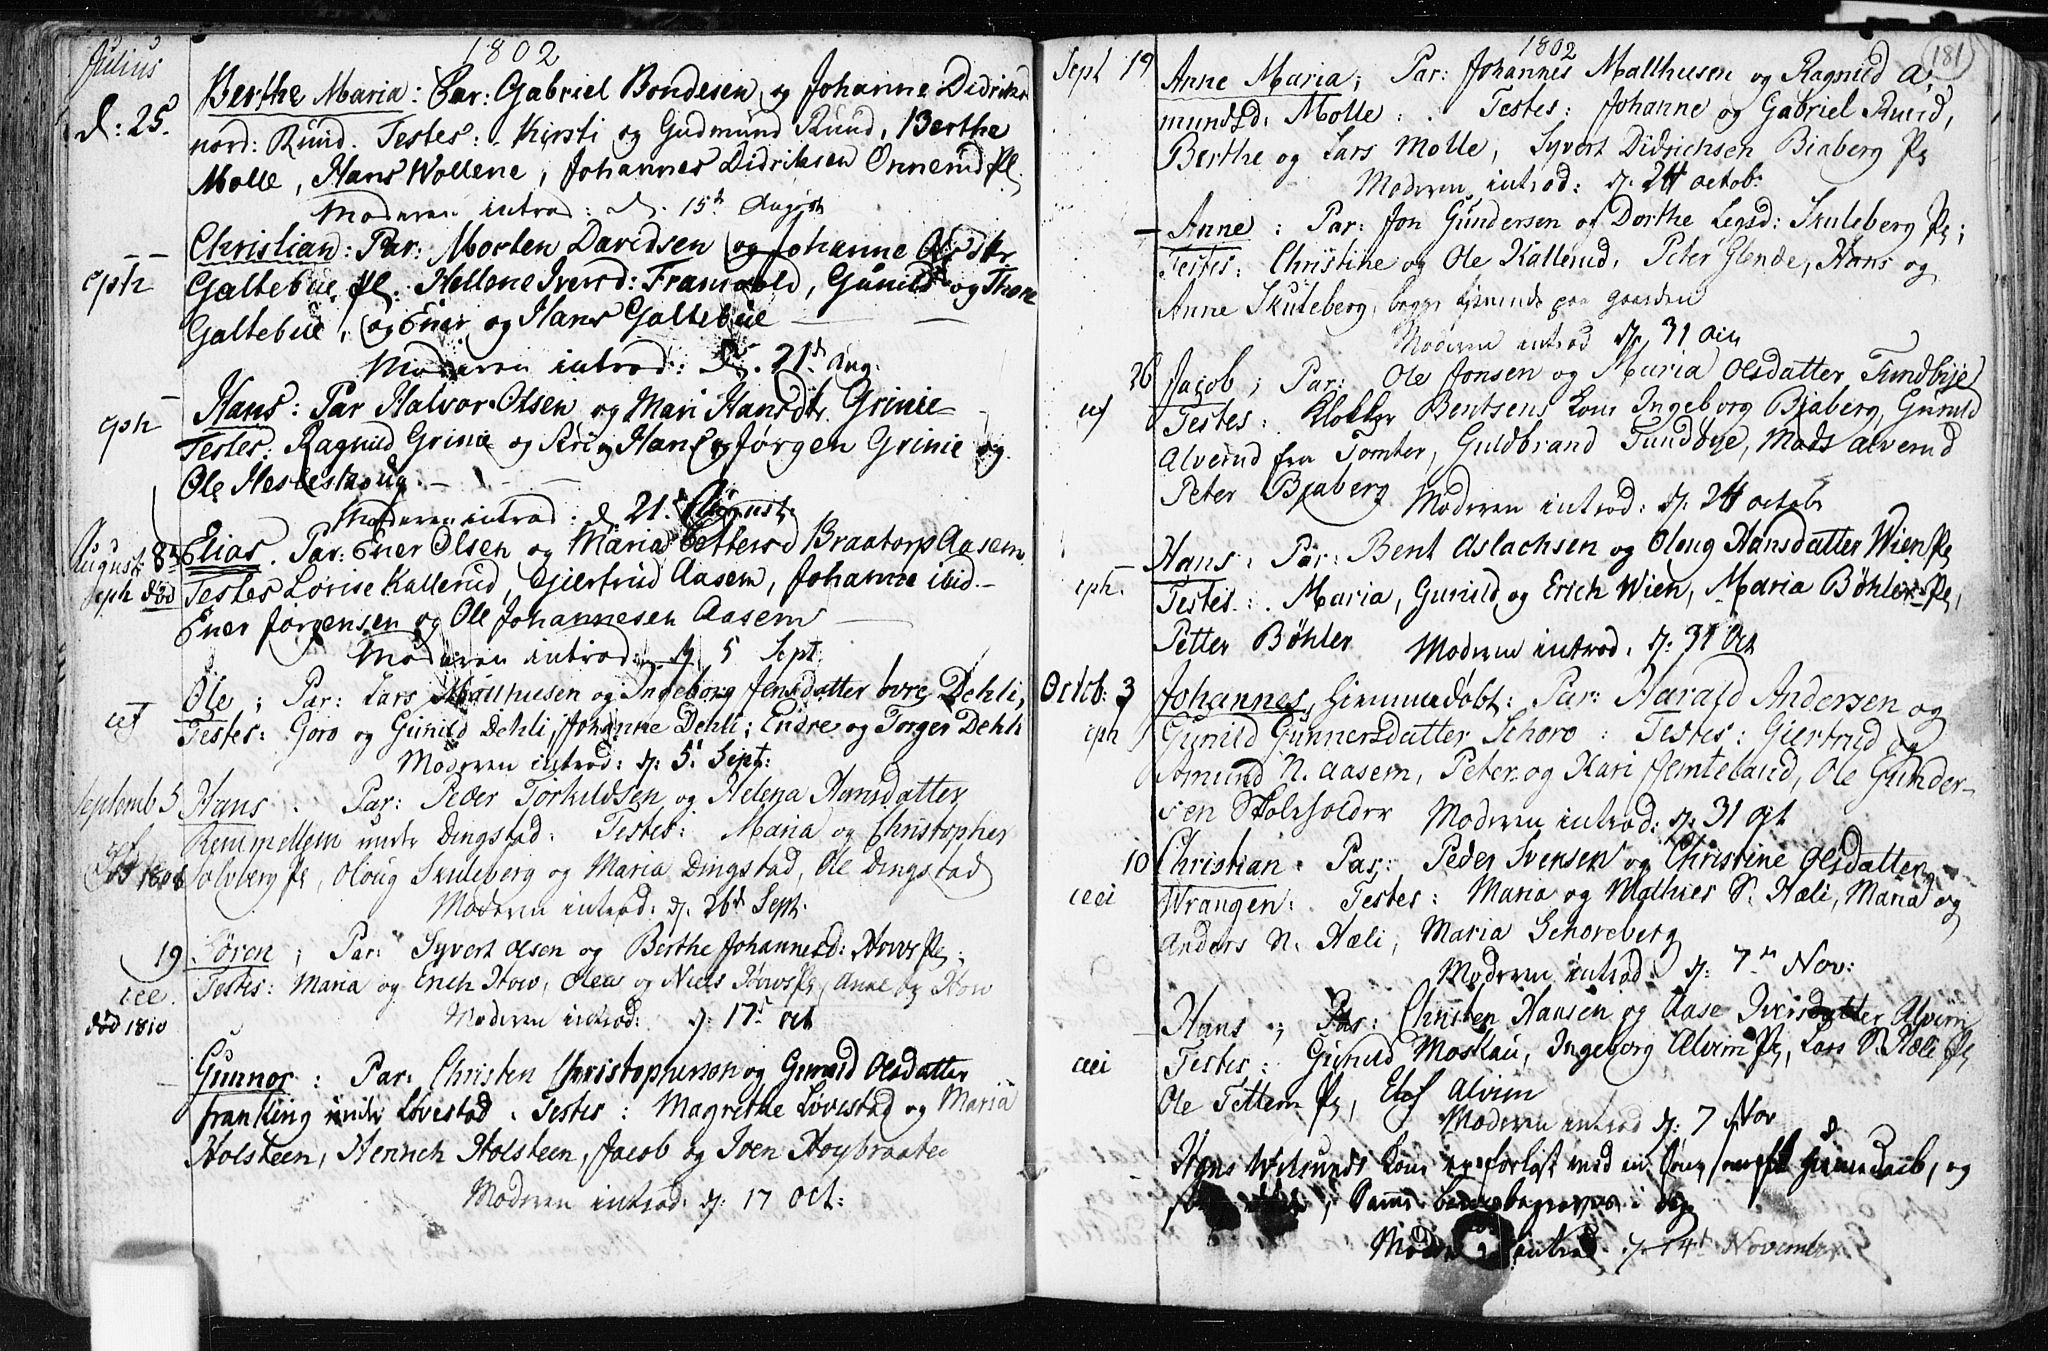 Julius
1802
d: 25.
Berthe Maria: Par: Gabriel Bondesen og Johanne Didriks
nord: Ruud. Testes: Kirsti og Gudmund Ruud, Berthe
Molle, Hans Wollene, Johannes Didriksen Onnerud Pl
Moderen introd: d. 15de August
Christian: Par: Morten Davidsen og Johanne Olsdtr
eph
Galtebue Pl. Hellene Iversd: Framvold, Gunild og Thore
Galtebue, og Ener og Hans Galtebue
Moderen introd: d. 21de Aug.
Hans: Par Halvor Olsen og Mari Hansdtr Grinie
eph
Testes: Ragnild Grinie og Siri og Hans og Jørgen Grinie og
Ole Hesteskoug
Moderen introd: d 21. August.
August 8de
Elias. Par: Ener Olsen og Maria Pettersd Braatorp Aasem
eph død
Testes Lovise Kallerud, Gjertrud Aasem, Johanne ibid.
Ener Jørgensen og Ole Johannesen Aasem
Moderen introd: d. 5 Sept:
Ole; Par: Lars Matthiesen og Ingeborg Jensdatter øvre Dehli,
cef
Testes: Goro og Gunild Dehli, Johanne Dehli; Endre og Torger Dehli
Moderen introd: d: 5. Sept:
Septemb 5
Hans. Par: Peder Torkildsen og Helena Hansdatter
Remmellem under Dingstad: Testes: Maria og Christopher
1808
Solberg Pl, Oloug Skuleberg og Maria Dingstad, Ole Dingstad
Moderen introd: d. 26de Sept:
19
Sören; Par: Syvert Olsen og Berthe Johannesd: Hovs Pl;
cee.
Testes: Maria og Erich How, Olea og Niels Hovs Pl, Anne og How
død 1810
Moderen introd: d: 17de oct
Gunnor: Par: Christen Christophersen og Gunild Olsdatter
franking under Løvestad. Testes: Magrethe Løvestad og Maria
Holsteen, Henrich Holsteen, Jacob og Iven Hoybraate
Moderen introd: d: 17 Oct:
1802
181
Sept 19
Anne Maria; Par: Johannes Matthiesen og Ragnild A-
mundsd: Molle: Testes: Johanne og Gabriel Ruud,
Berthe og Lars Molle, Syvert Didrichsen Biaberg Pl
Moderen introd: d. 24 octob:
Anne: Par: Jon Gundersen og Dorthe Legsd: Skuleberg Pl;
Testes: Christine og Ole Kallerud, Peter Glende, Hans og
Anne Skuleberg, begge tienende paa gaarden
Moderen introd d. 31 Oct
26
Jacob; Par: Ole Jonsen og Maria Olsdatter Tundbye
cef
Testes: Klokker Bentsens Kone Ingeborg Bjaberg, Gunild
Alverud fra Tomter, Guldbrand Tundbye, Mads Alverud
Peter Bjaberg Moderen introd: d. 24 octob
Hans: Par: Bent Aslachsen og Oloug Hansdatter Wien Pl
eph.
Testes: Maria, Gunild og Erich Wien, Maria Bøhler Pl,
Petter Bøhler Moderen introd. d: 31 Oct
Octob: 3
Johannes, hiemmedøbt: Par: Harald Andersen og
eph
Gunild Gunnersdatter Schoro: Testes: Giertrud og
Amund N. Aasem, Peter og Kari Jemteland, Ole Gunder-
sen Skoleholder Moderen introd: d: 31 oct
10
Christian. Par: Peder Svensen og Christine Olsdatter
ceei
Wrangen: Testes: Maria og Mathies S. Hæli, Maria og
Anders N. Hæli, Maria Schoreberg
Moderen introd d: 7de Nov:
Hans; Par: Christen Hansen og Aase Iversdatter Alvim
ceei
Testes: Gunild Moslau, Ingeborg Alvim Pl, Lars N. Hæli Pl
Ole Tettem Pl, Elef Alvim
Moderen introd d: 7 Nov
Hans Kone er forløst med en
Moderen introd. d. 14de November